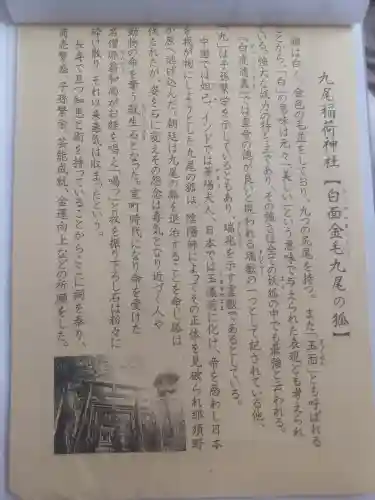 九尾稲荷神社【白面金毛九尾の狐】
顔は白く、金色の毛並をしており、九つの尻尾を持つ。また「玉面」とも呼ばれる
ことから、「白」の意味は元々「美しい」という意味で与えられた表現とも考えられ
ている。強大な妖力の持ち主であり、その強さは全ての妖狐の中でも最強と云われる。
『白虎通義』では皇帝の徳が良いと現われる瑞獣の一つとして記されている他、
「九」は子孫繁栄を示しているともあり、瑞兆を示す霊獣であるとしている。
中国では妲己、インドでは華陽夫人、日本では玉藻前に化け、帝を惑わし日本
を我が物にしようとした九尾の狐は、陰陽師によってその正体を見破られ那須野
が原へ逃げ込んだ。朝廷は九尾の狐を退治することを命じ狐は
伏されたが、姿を石に変えその怨念は毒気となり近づく人や
動物の命を奪う殺生石となった。室町時代になり命を受けた
高僧源翁和尚がお経を唱え「喝っ」と杖を振り下ろし石は粉々に
砕け散り、それ以来毒気は収まったという。
長年で且つ知恵と術を持っていることからここに祠を奉り、
商売繁盛、子孫繁栄、芸能成就、金運向上などの祈願をした。